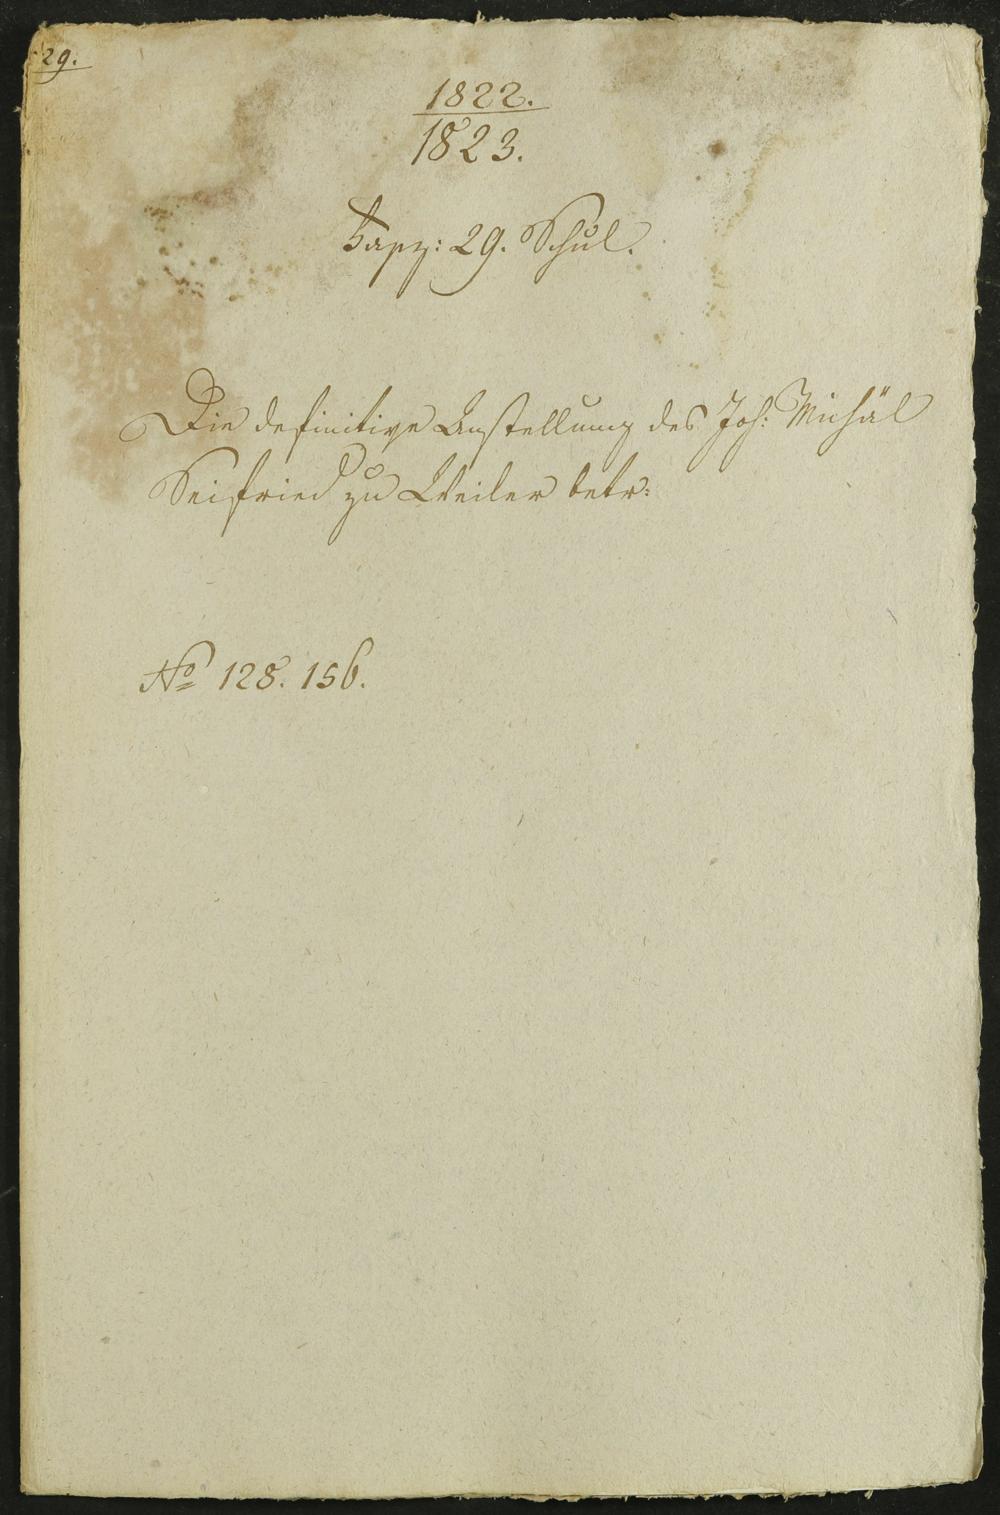 29.
1822.
1823.
Fasz: 29. Schul.
Die definitive Anstellung des Joh: Michäl
Seifried zu Weiler betr:
No 128. 156.